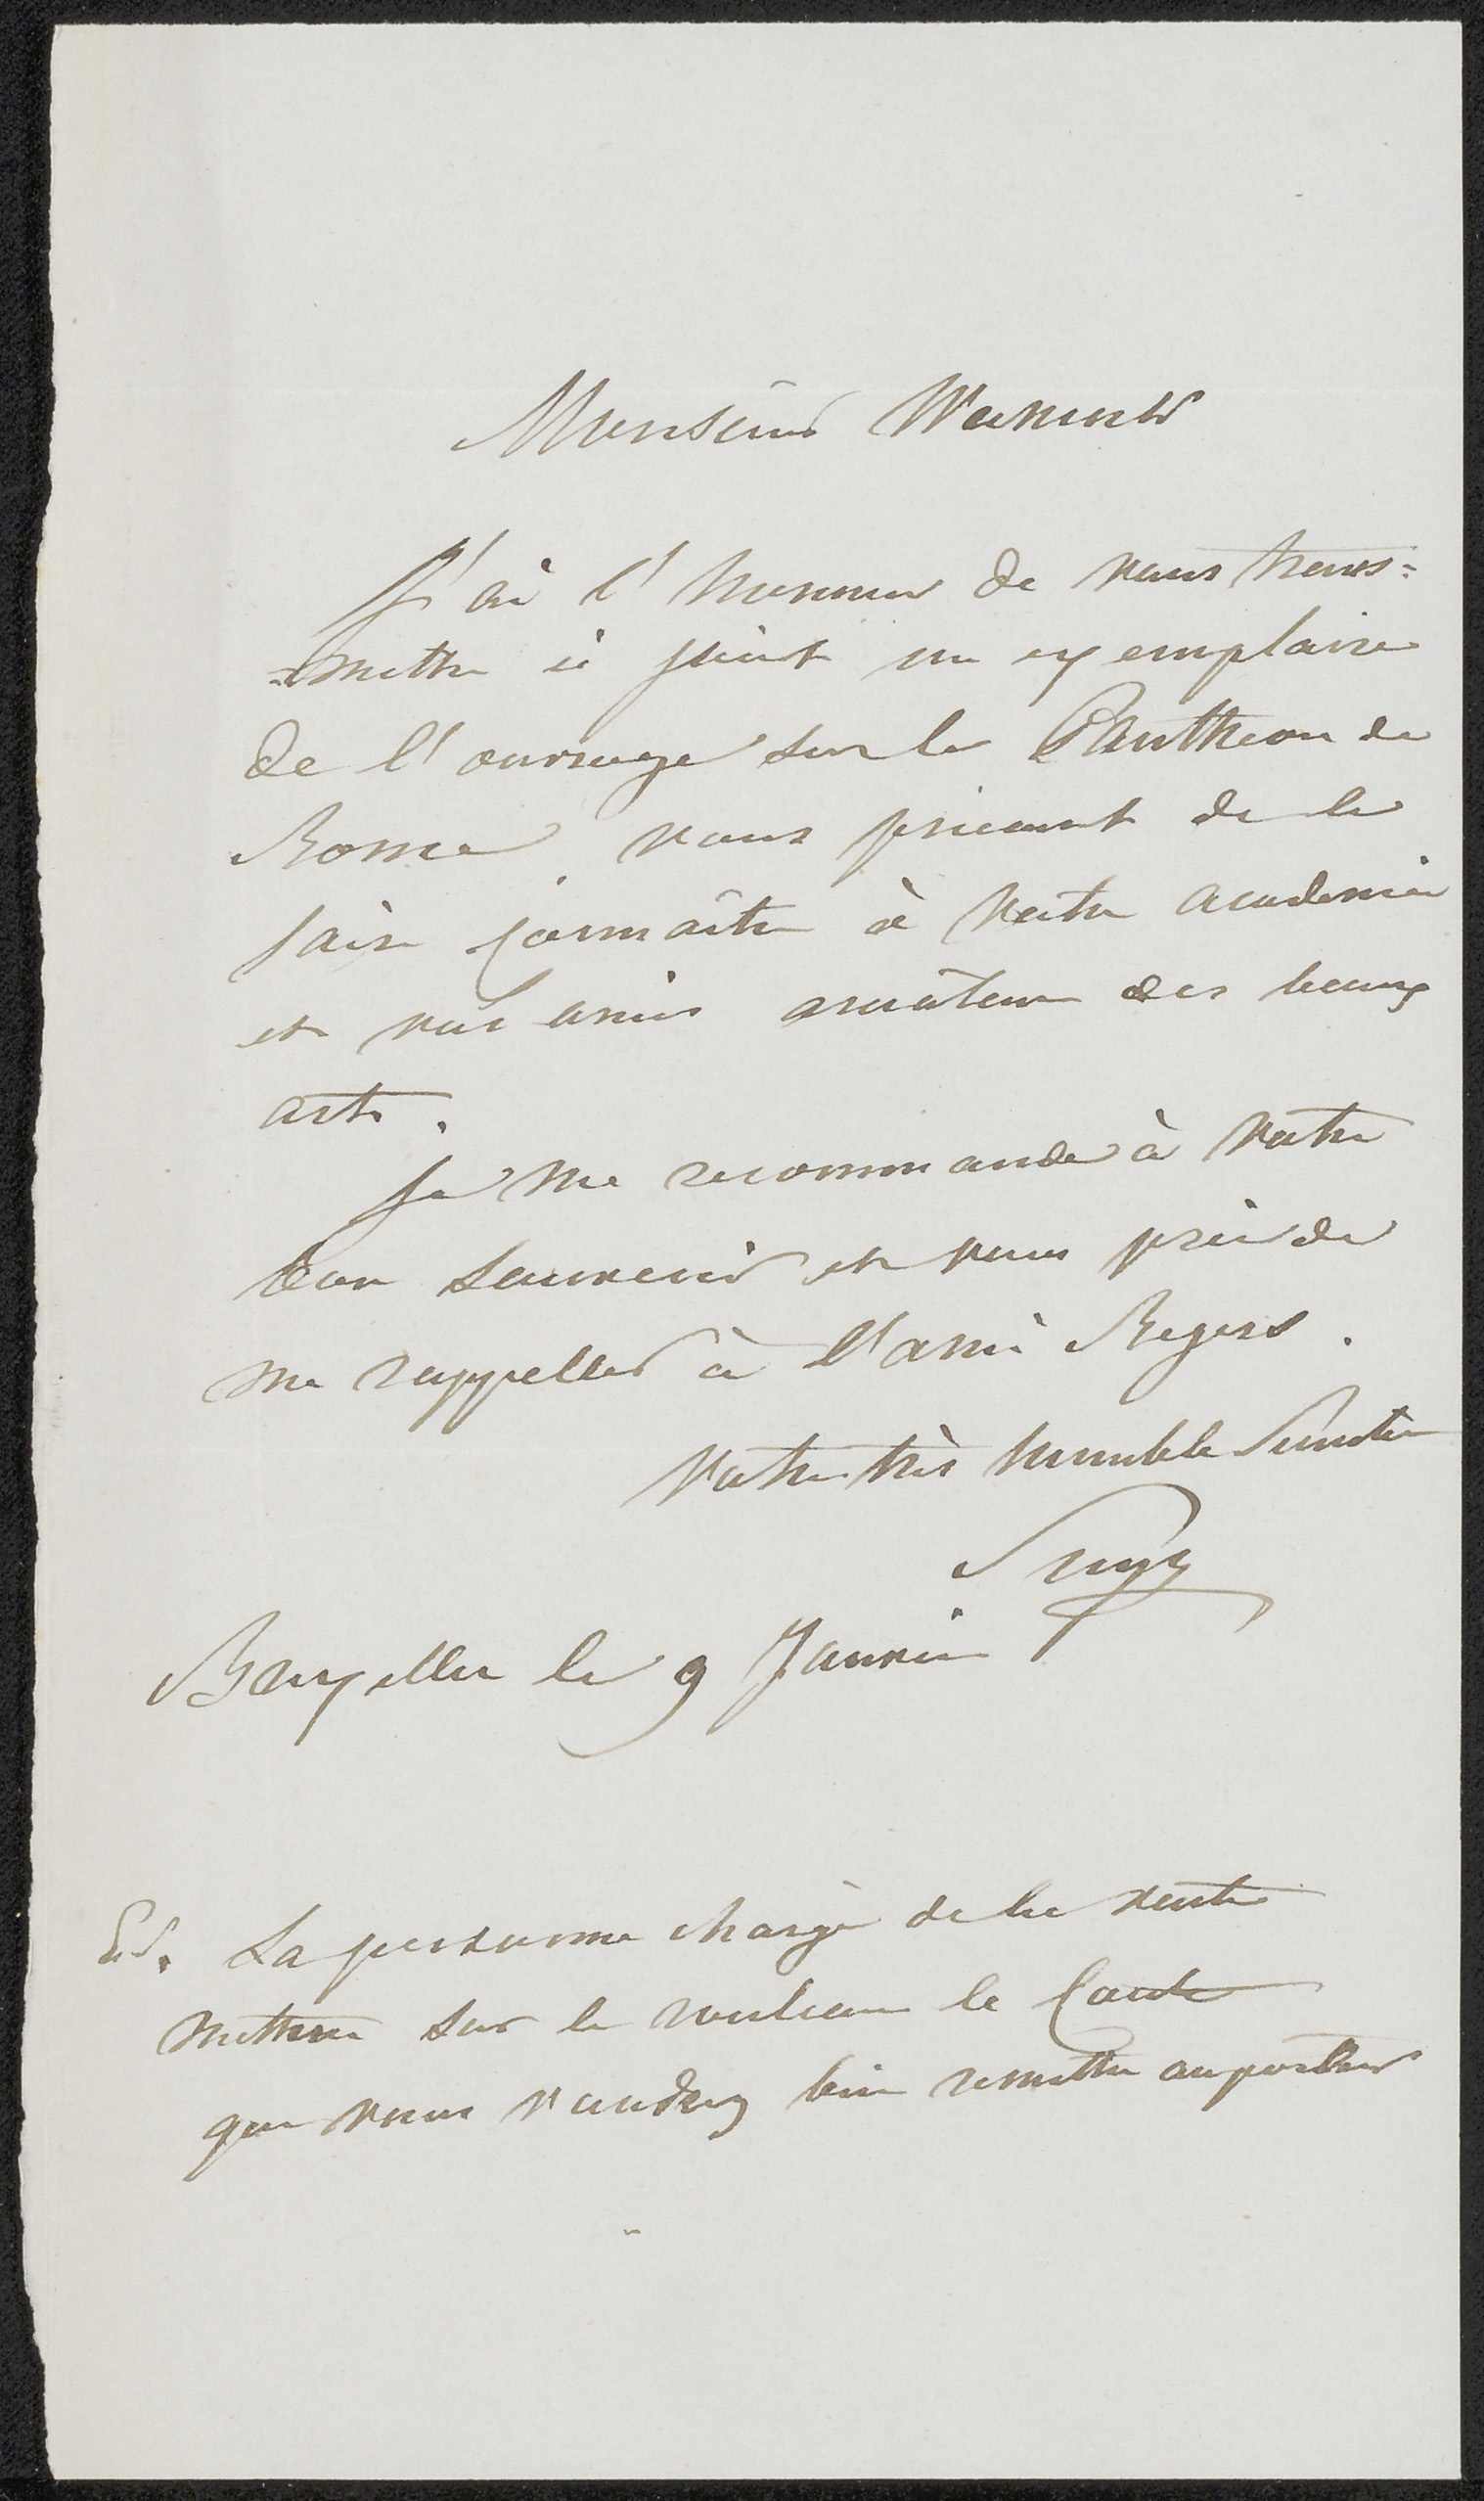 Monsieur Warnars
J'ai l'honneur de vous trans=
=mettre ci joint un exemplaire
de l'ouvrage sur le Pantheon de
Rome vous priant de le
faire connaître à votre academie
et vos amis amateurs des beaux
arts.
Je me recommande à votre
bon souvenir et vous prie de
me rappeller à l'ami
Votre très humble Serviteur
Suys
Bruxelles le 9 Janvier
P.S. La personne chargé de la vente
mettra sur le rouleau le
que vous voudrez bien remettre au porteur